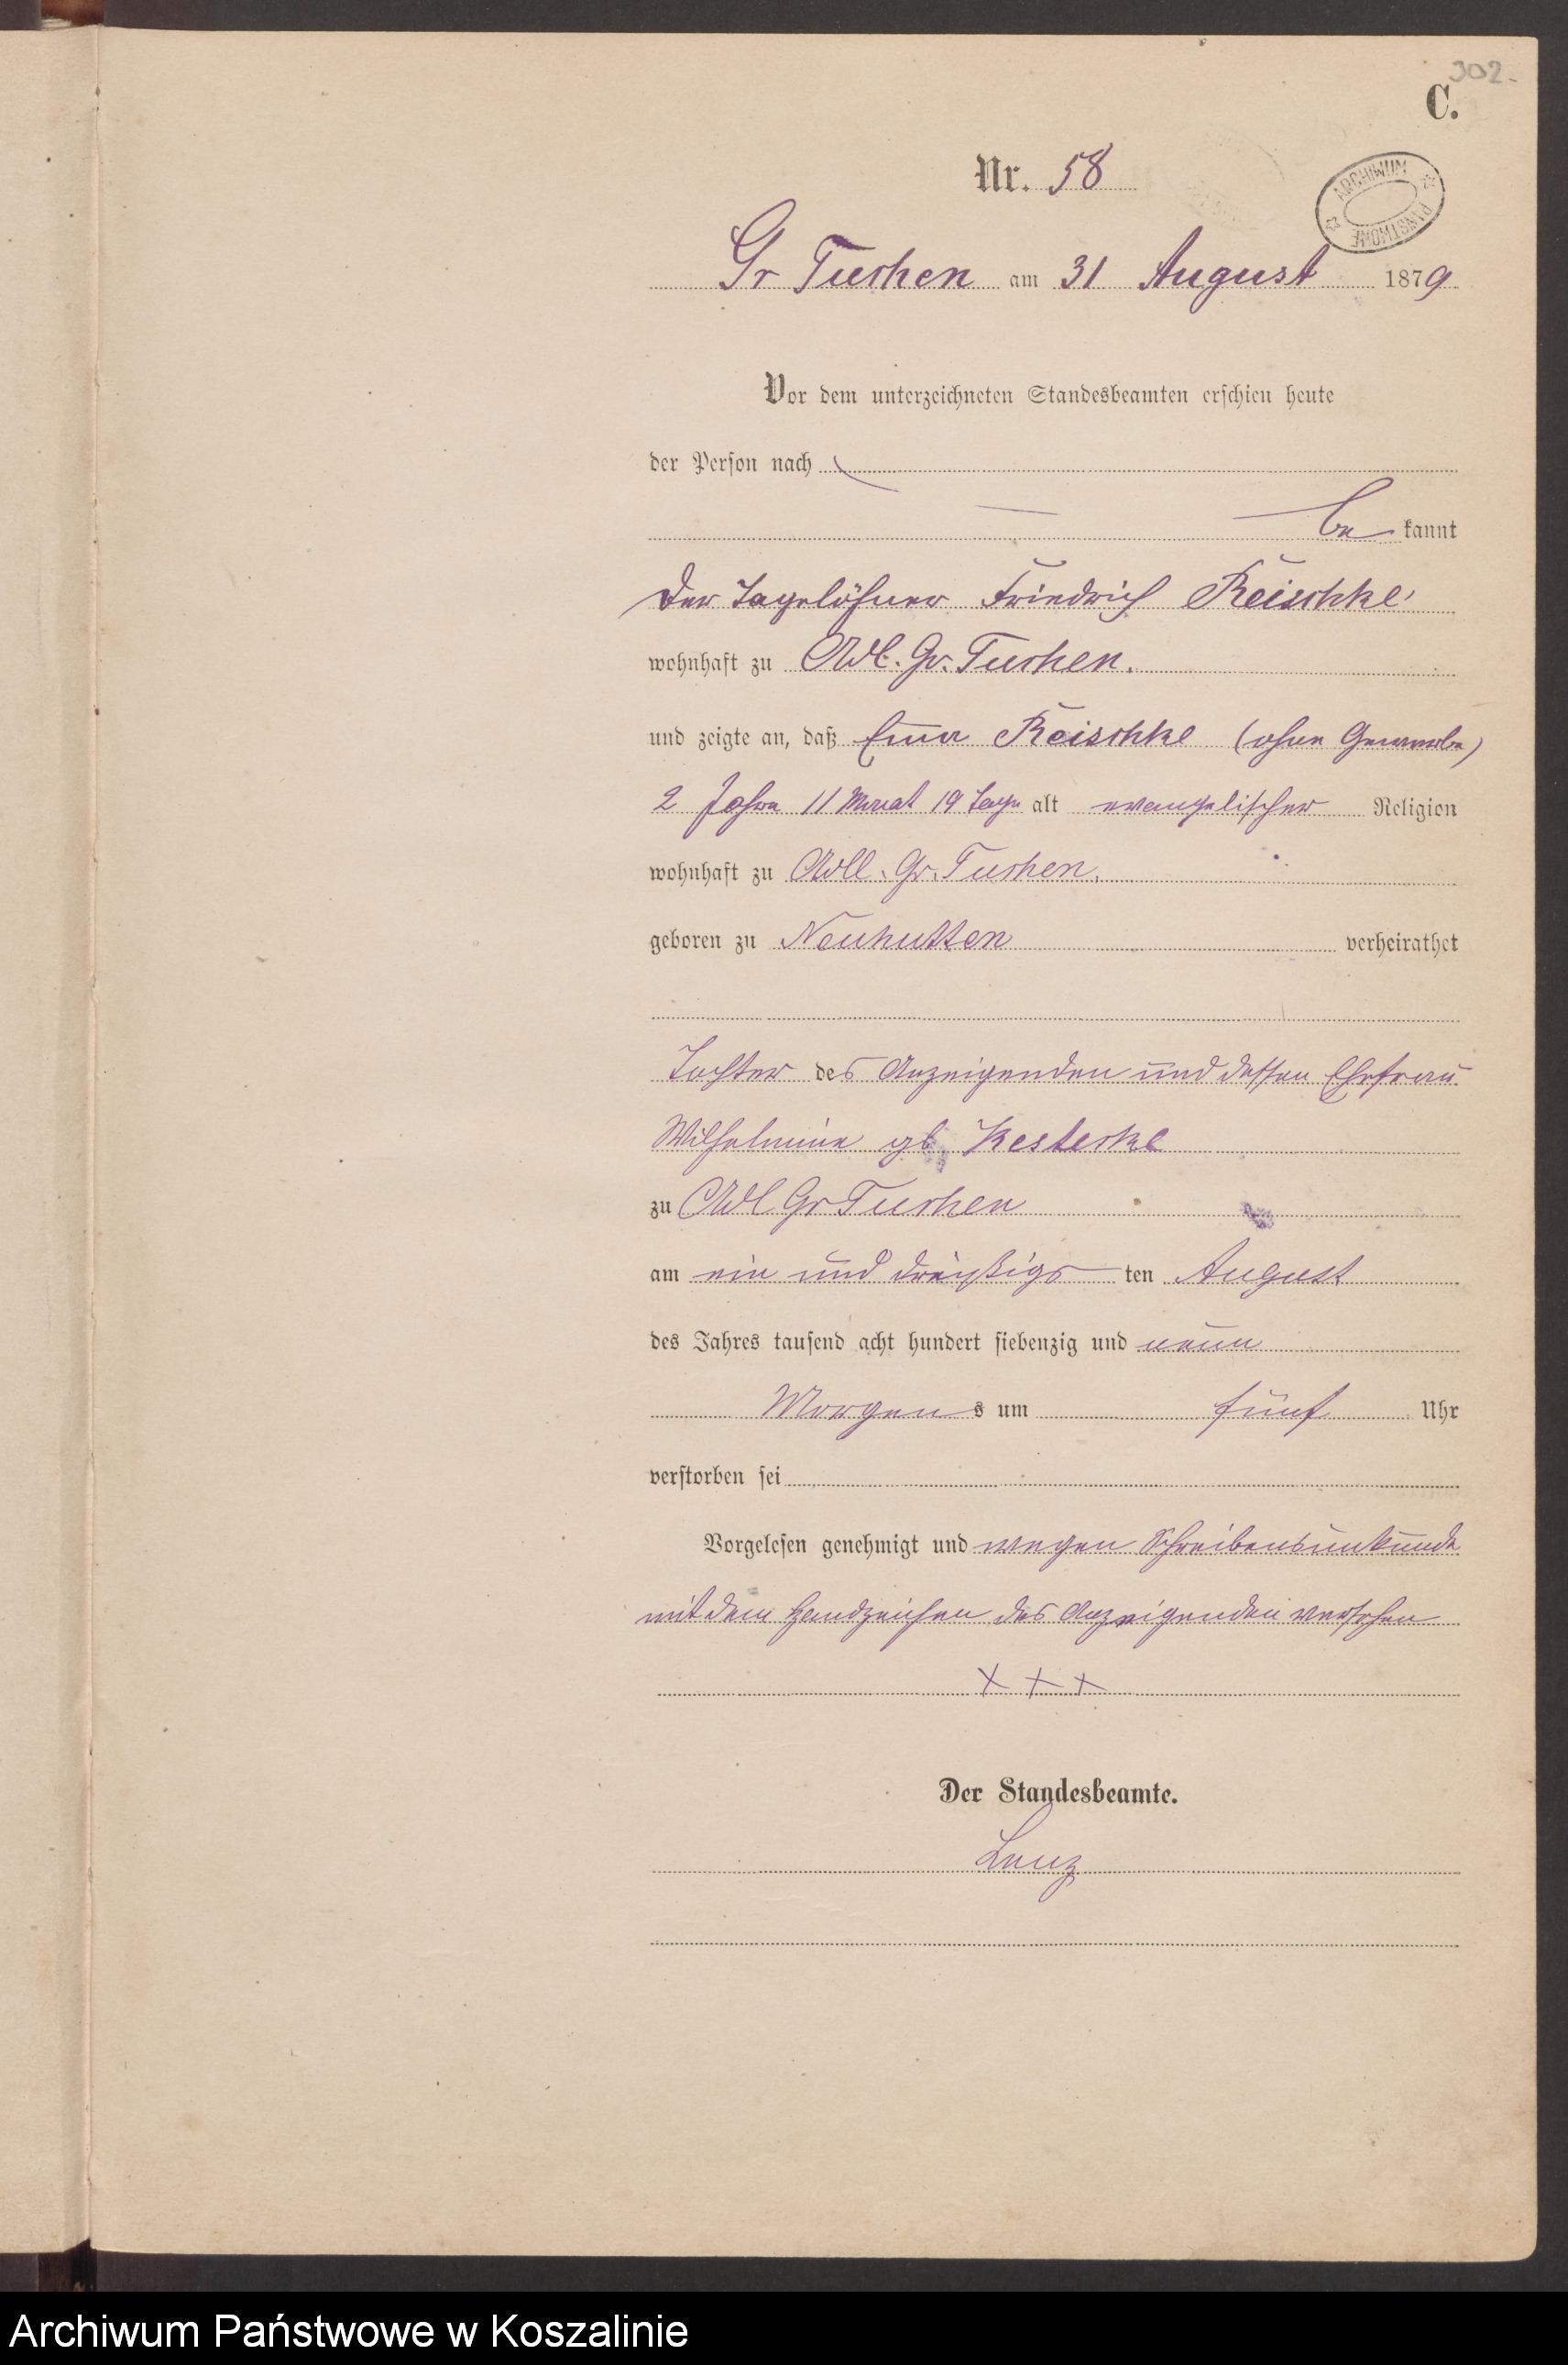 302.
C.
Nr. 58
ARCHIWUM PAŃSTWOWE
Gr Tuchen am 31 August 1879
Vor dem unterzeichneten Standesbeamten erschien heute
der Person nach
be kannt
Der Tagelöhner Friedrich Reischke
wohnhaft zu Adl. Gr. Tuchen.
und zeigte an, daß Emma Reischke (ohne Gewerbe)
2 Jahre 11 Monat 19 Tage alt evangelischer Religion
wohnhaft zu Adll. Gr. Tuchen.
geboren zu Neuhütten verheirathet
Tochter des Anzeigenden und dessen Ehefrau
Wilhelmine gb.
zu Adl. Gr Tuchen
am ein und dreißigs ten August
des Jahres tausend acht hundert siebenzig und neun
Morgen s um fünf Uhr
verstorben sei
Vorgelesen genehmigt und wegen Schreibensunkunde
mit dem Handzeichen des Anzeigenden versehen
+ + +
Der Standesbeamte.
Lenz
Archiwum Państwowe w Koszalinie